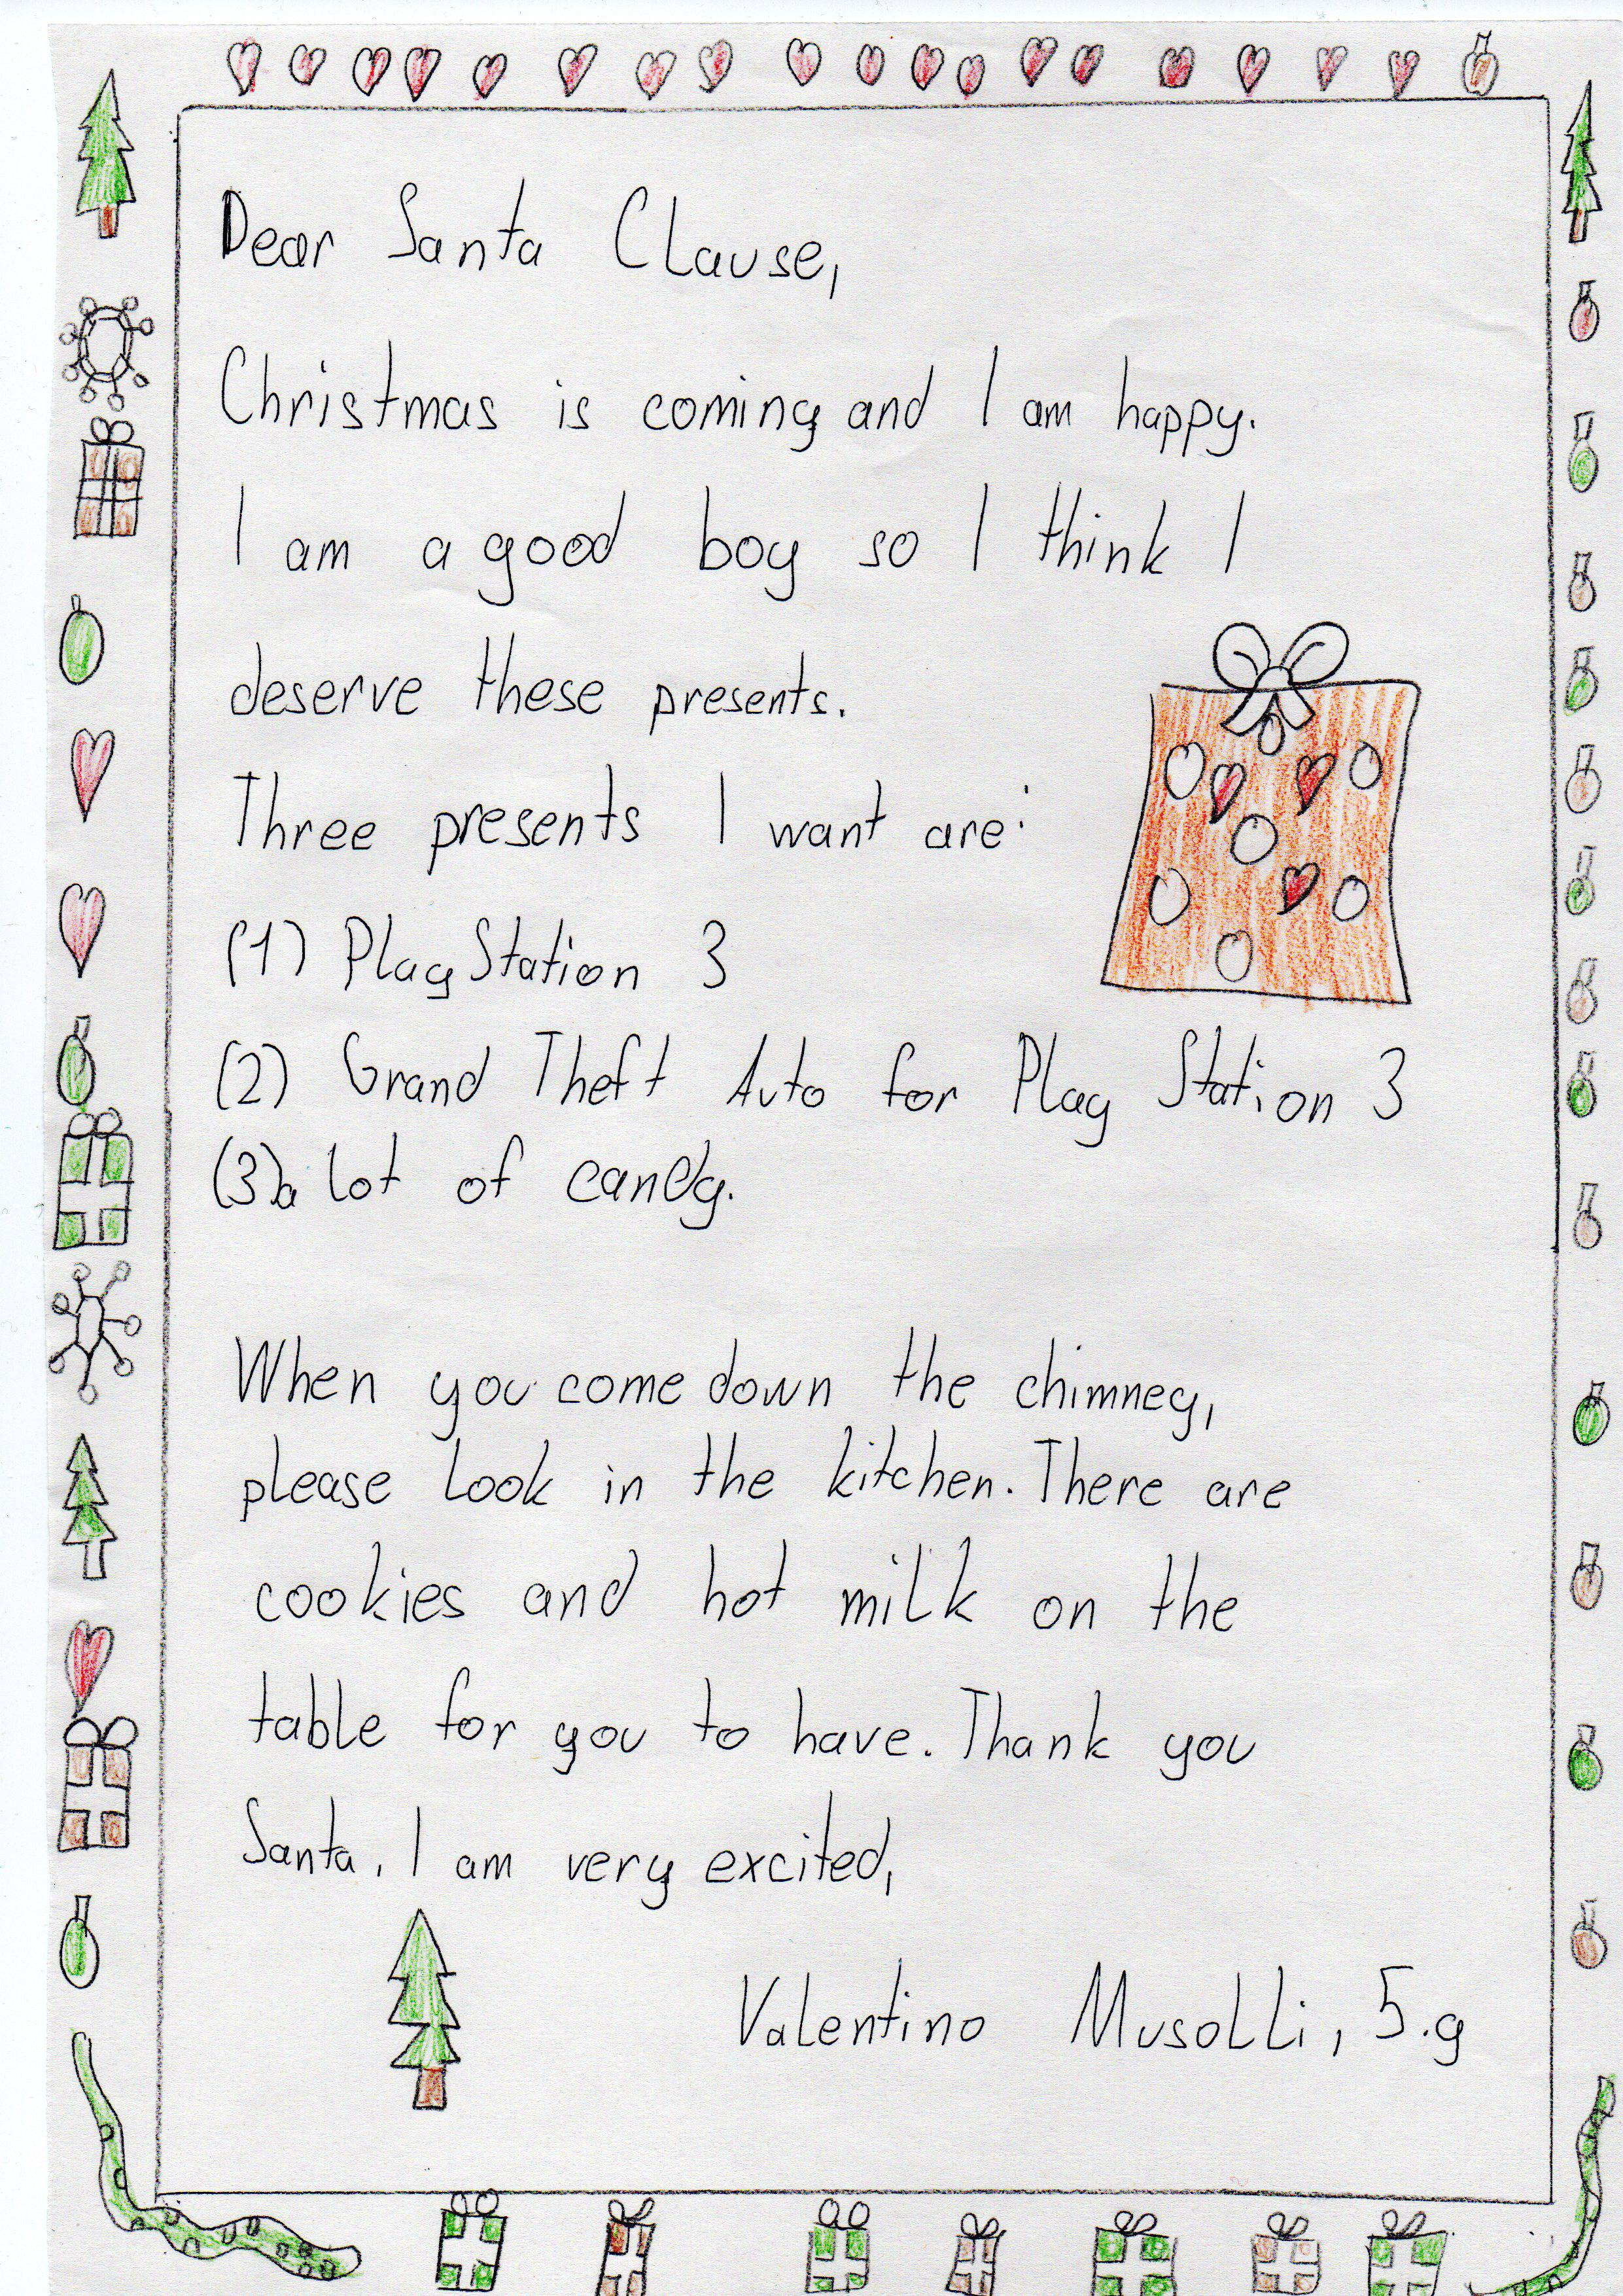 Dear Santa Clause,
Christmas is coming and I am happy.
I am a good boy so I think I
deserve these presents.
Three presents I want are:
(1) PlayStation 3
(2) Grand Theft Auto for Play Station 3
(3) a lot of candy.
When you come down the chimney,
please look in the kitchen. There are
cookies and hot milk on the
table for you to have. Thank you
Santa. I am very excited,
Valentino Musolli, 5.g